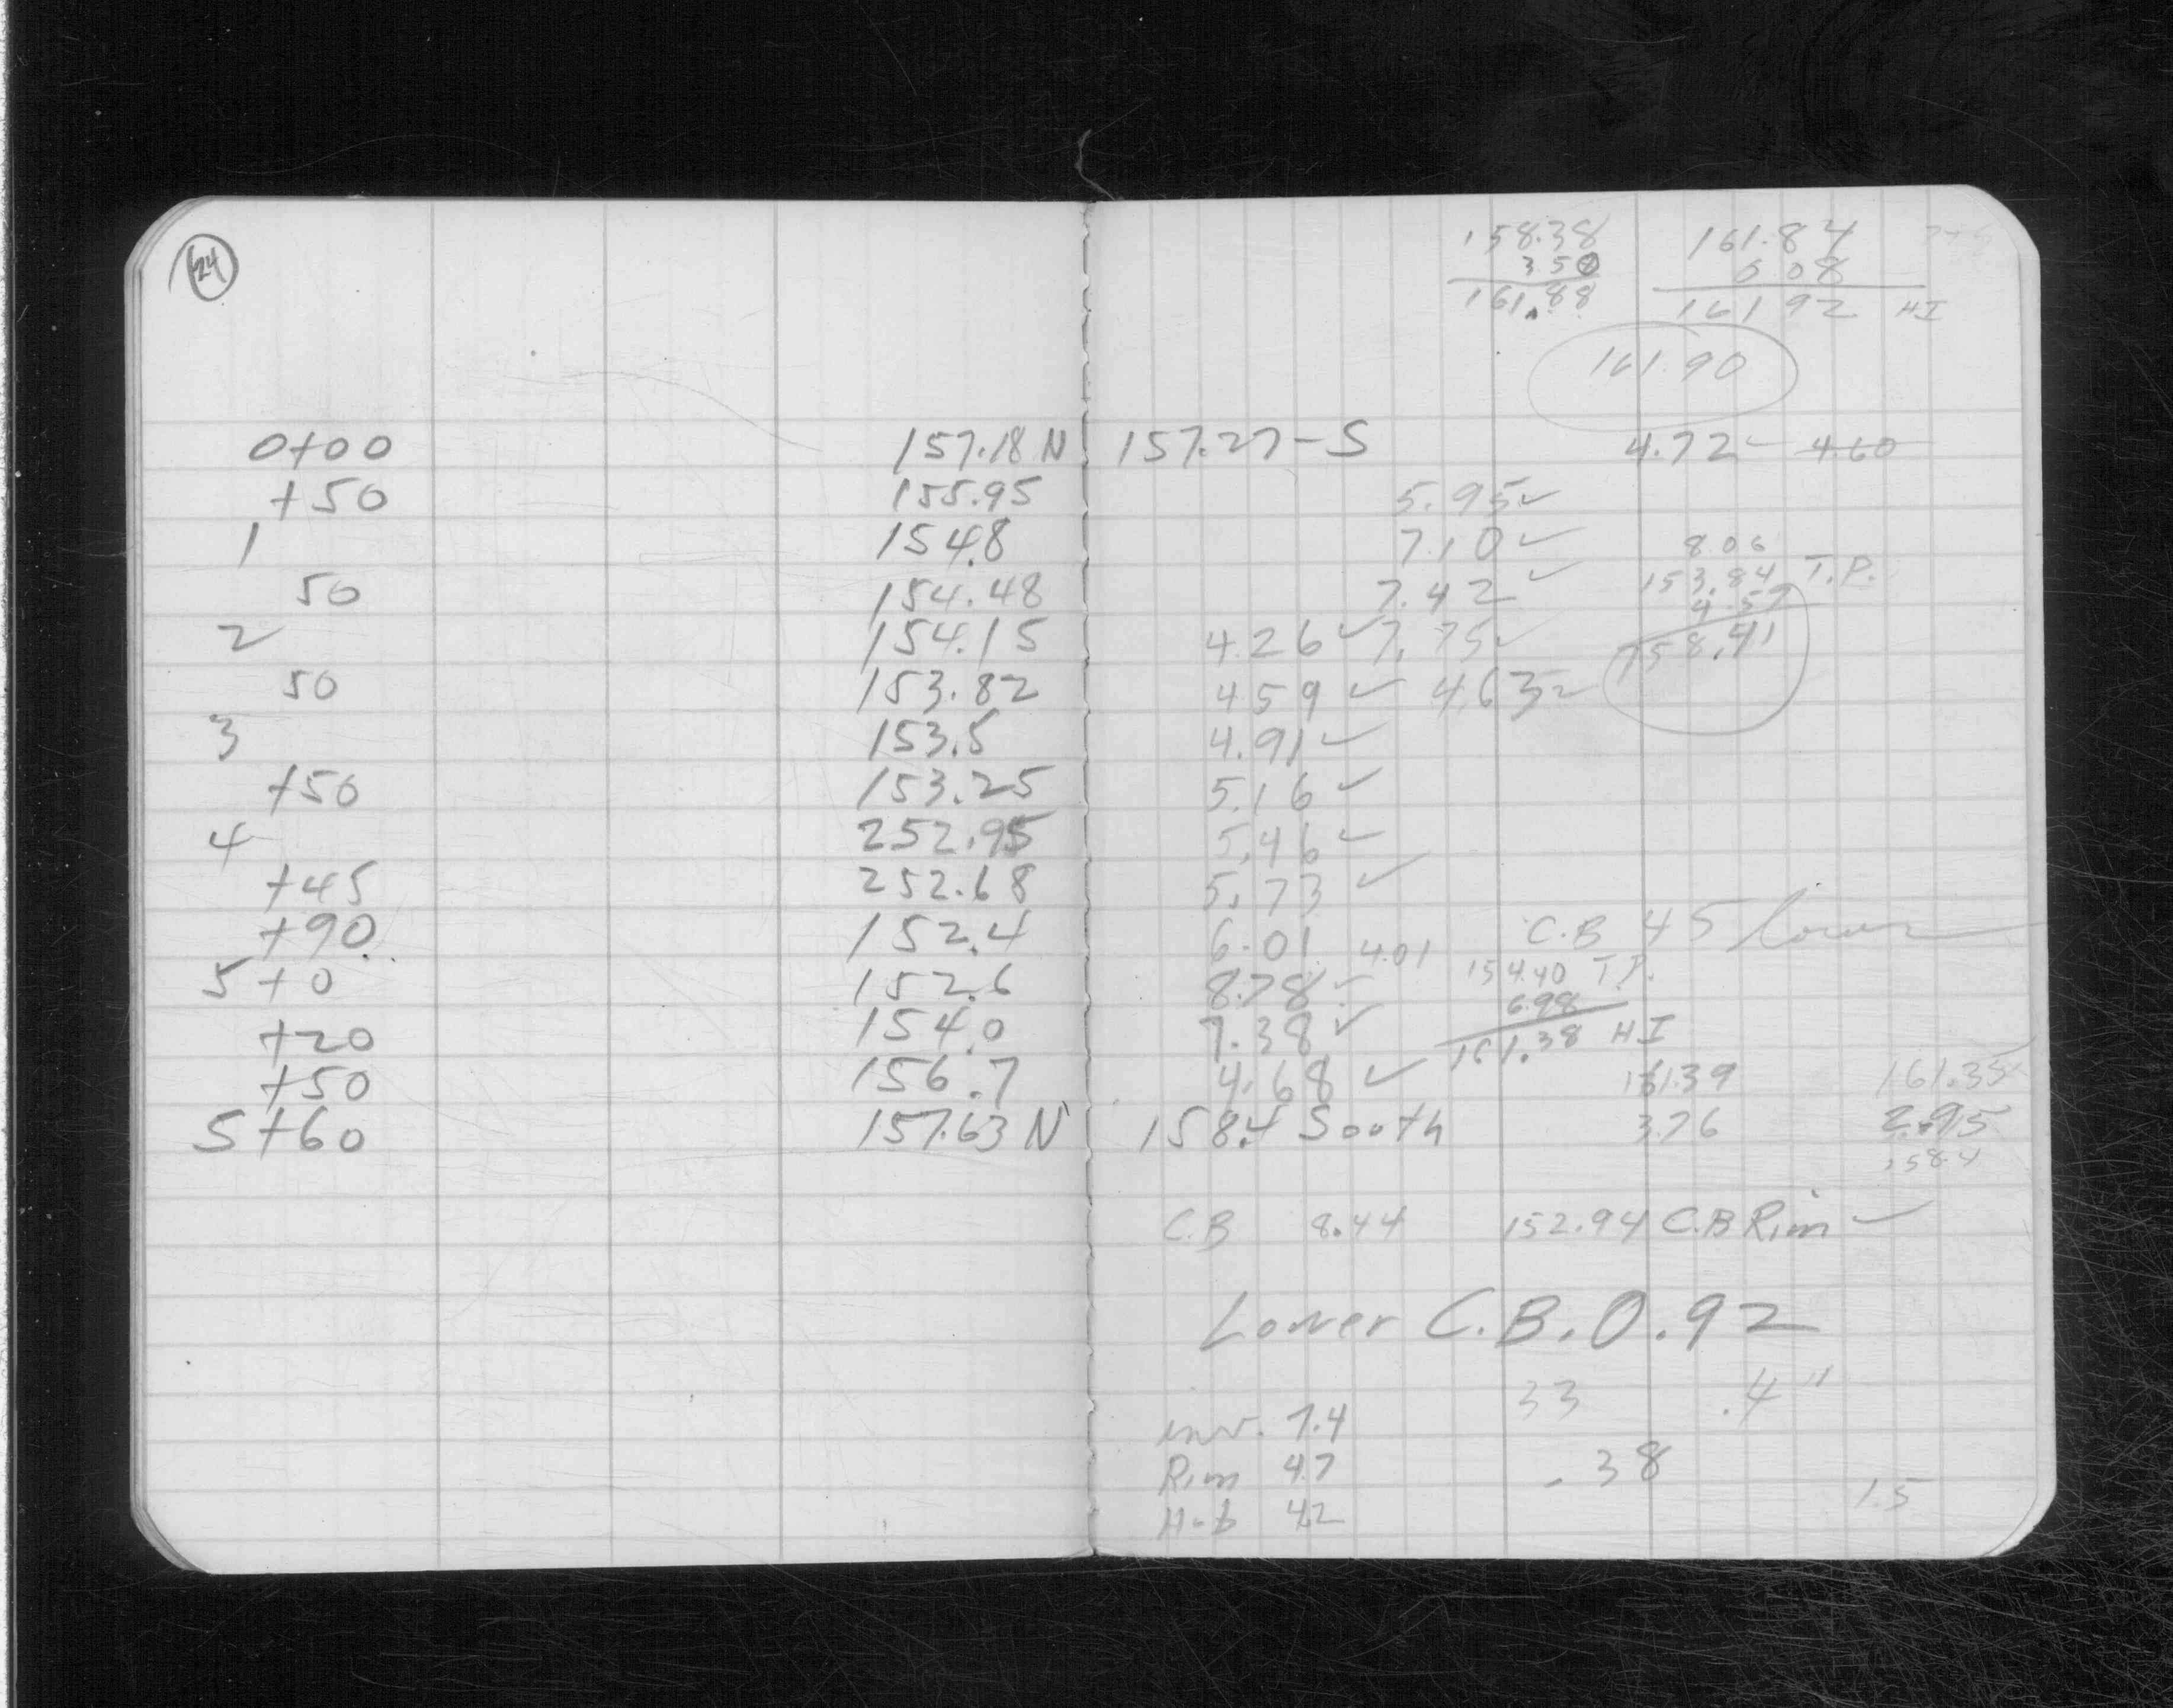 24
158.38 161.84
3 50 0 08
161.88 161 92 HI
161.90
0+00 157.18 N 157.27-S 4.72 4.60
+50 155.95 5.95 ✓
1 154.8 7.10 ✓ 8 06
50 154.48 7.42 ✓ 153.84 T.P.
4.57
2 154.15 4.26 ✓ 7.75 ✓ 158.41
50 153.82 4.59 ✓ 4.63
3 153.5 4.91 ✓
+50 153.25 5.16 ✓
4 252.95 5.46 ✓
+45 252.68 5.73 ✓
+90 152.4 6.01 4.01 C.B 45 lower
5+0 152.6 8.78 ✓ 154.40 T.P.
6.98
+20 154.0 7.38 ✓ 161.38 HI
+50 156.7 4.68 ✓ 161.39 161.35
5+60 157.63 N 158.4 South 3.76 2.95
158.4
C.B 8.44 152.94 C.B Rim ✓
Lower C.B. 0.92
33 .4"
inv. 7.4
Rim 4.7 .38
Hub 4.2 1.5